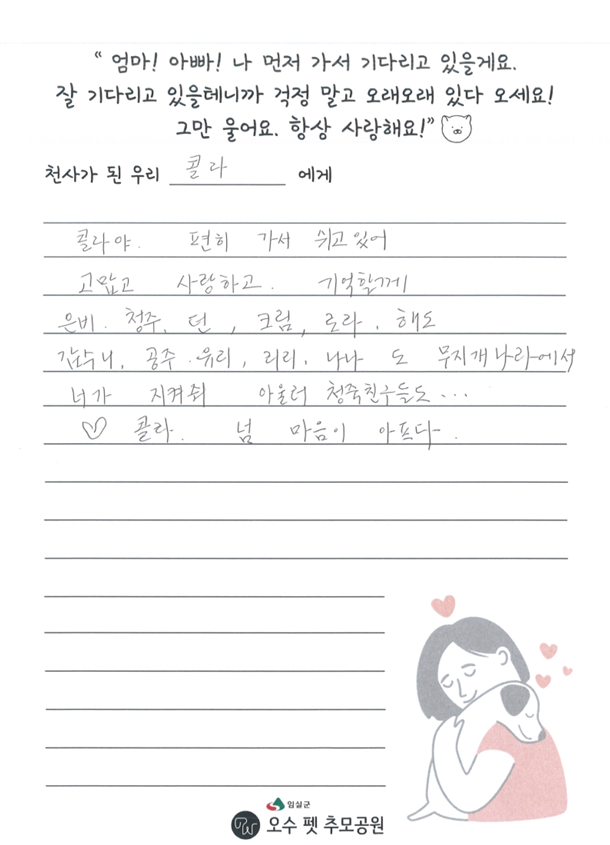 “ 엄마! 아빠! 나 먼저 가서 기다리고 있을게요.
잘 기다리고 있을테니까 걱정 말고 오래오래 있다 오세요!
그만 울어요. 항상 사랑해요!”
천사가 된 우리 콜라 에게
콜라야. 편히 가서 쉬고있어
고맙고 사랑하고. 기억할께
은비. 청주, 던, 크림, 로라. 해도
공주. 유리, 리리. 나나 도 무지개나라에서
너가 지켜줘 아울러 청죽친구들도...
♡ 콜라. 넘 마음이 아프다.
임실군
PW 오수 펫 추모공원